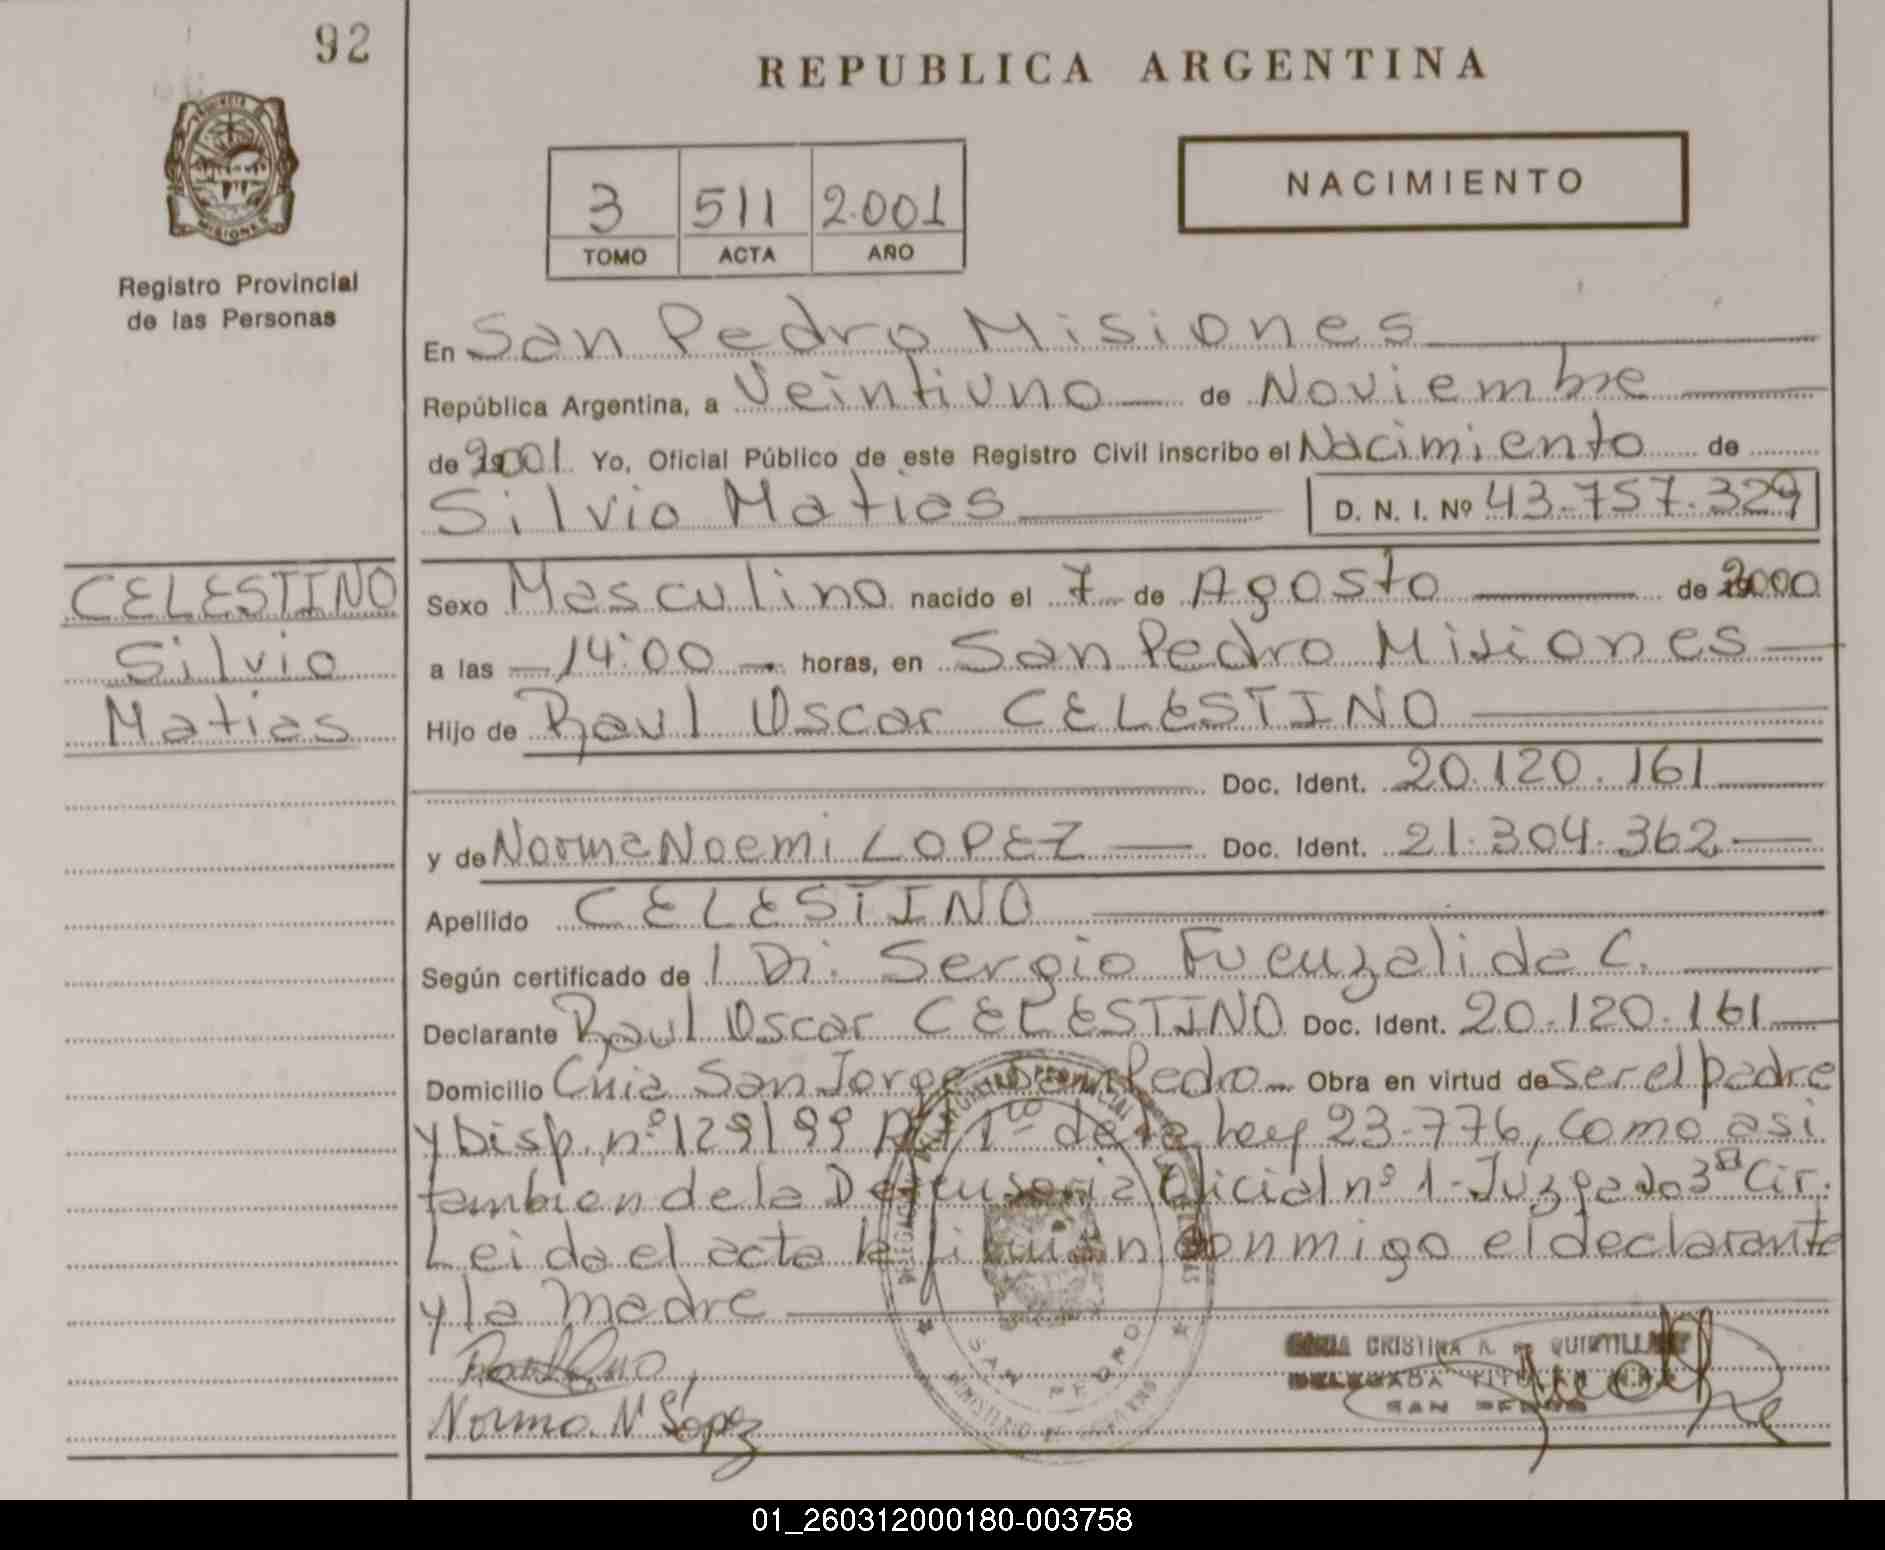 92
REPUBLICA ARGENTINA
PROVINCIA DE
MISIONES
Registro Provincial
de las Personas
3 511 2.001
TOMO ACTA AÑO
NACIMIENTO
En San Pedro Misiones
República Argentina, a Veintiuno de Noviembre
de 2001 Yo, Oficial Público de este Registro Civil inscribo el Nacimiento de
Silvio Matias D. N. I. Nº 43.757.329
CELESTINO
Silvio
Matias
Sexo Masculino nacido el 7 de Agosto de 2000
a las 14:00 horas, en San Pedro Misiones
Hijo de Raul Oscar CELESTINO
Doc. Ident. 20.120.161
y de Norma Noemi LOPEZ Doc. Ident. 21.304.362
Apellido CELESTINO
Según certificado de Dr. Sergio Fuenzalida C.
Declarante Raul Oscar CELESTINO Doc. Ident. 20.120.161
Domicilio Cnia San Jorge San Pedro Obra en virtud de ser el padre
y Disp. nº 129/99 Art 1º de la Ley 23.776, como asi
tambien de la Defensoria Oficial nº 1 - Juzgado 3ª Cir.
Leida el acta la firman conmigo el declarante
y la madre
Norma N López
SAN PEDRO
CRISTINA A. DE QUINTILLAN
DELEGADA TITULAR
SAN PEDRO
01_260312000180-003758